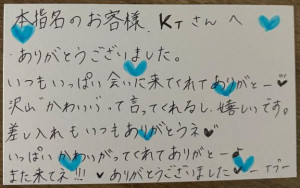 本指名のお客様、KTさんへ
ありがとうございました。
いつもいっぱい会いに来てくれてありがとー♥
沢山"かわいい"って言ってくれるし、嬉しいです。
差し入れもいつもありがとうネ♥
いっぱいかわいがってくれてありがとー♪
また来てネ!!! ♥ありがとうございました♥